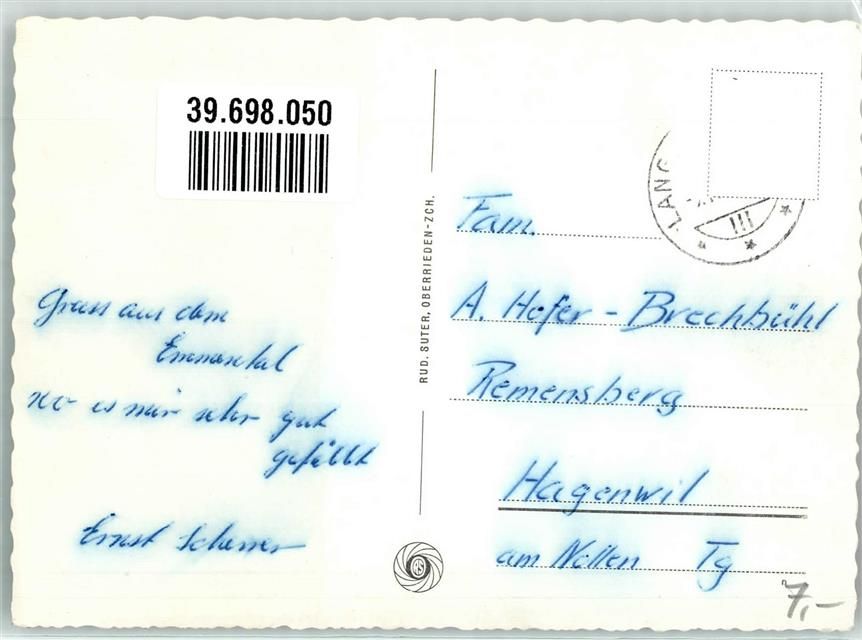 39.698.050
Gruss aus dem
Emmental
wo es mir sehr gut
gefällt
Ernst Scherrer
RUD. SUTER, OBERRIEDEN-ZCH.
LANG
III
Fam.
A. Hofer - Brechbühl
Remensberg
Hagenwil
am Nollen Tg
7,-